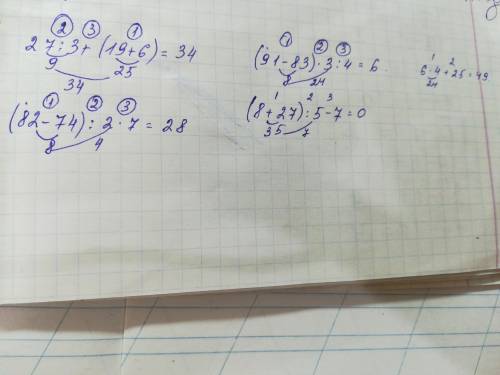 ② ③ ①
27 : 3 + (19 + 6) = 34
9 25
34
① ② ③
(82 - 74) : 2 · 7 = 28
8 4
① ② ③
(91 - 83) · 3 : 4 = 6
8 24
1 2 3
(8 + 27) : 5 - 7 = 0
35 7
1 2
6 · 4 + 25 = 49
24